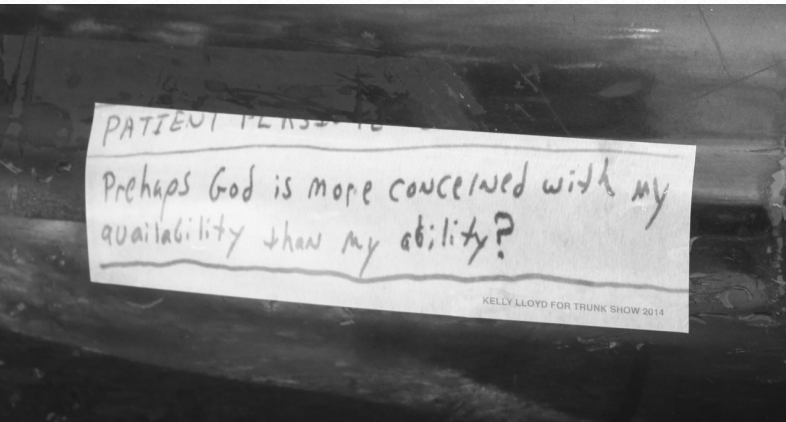 PATIENT
Prehaps God is more concerned with my
availability than my ability?
KELLY LLOYD FOR TRUNK SHOW 2014